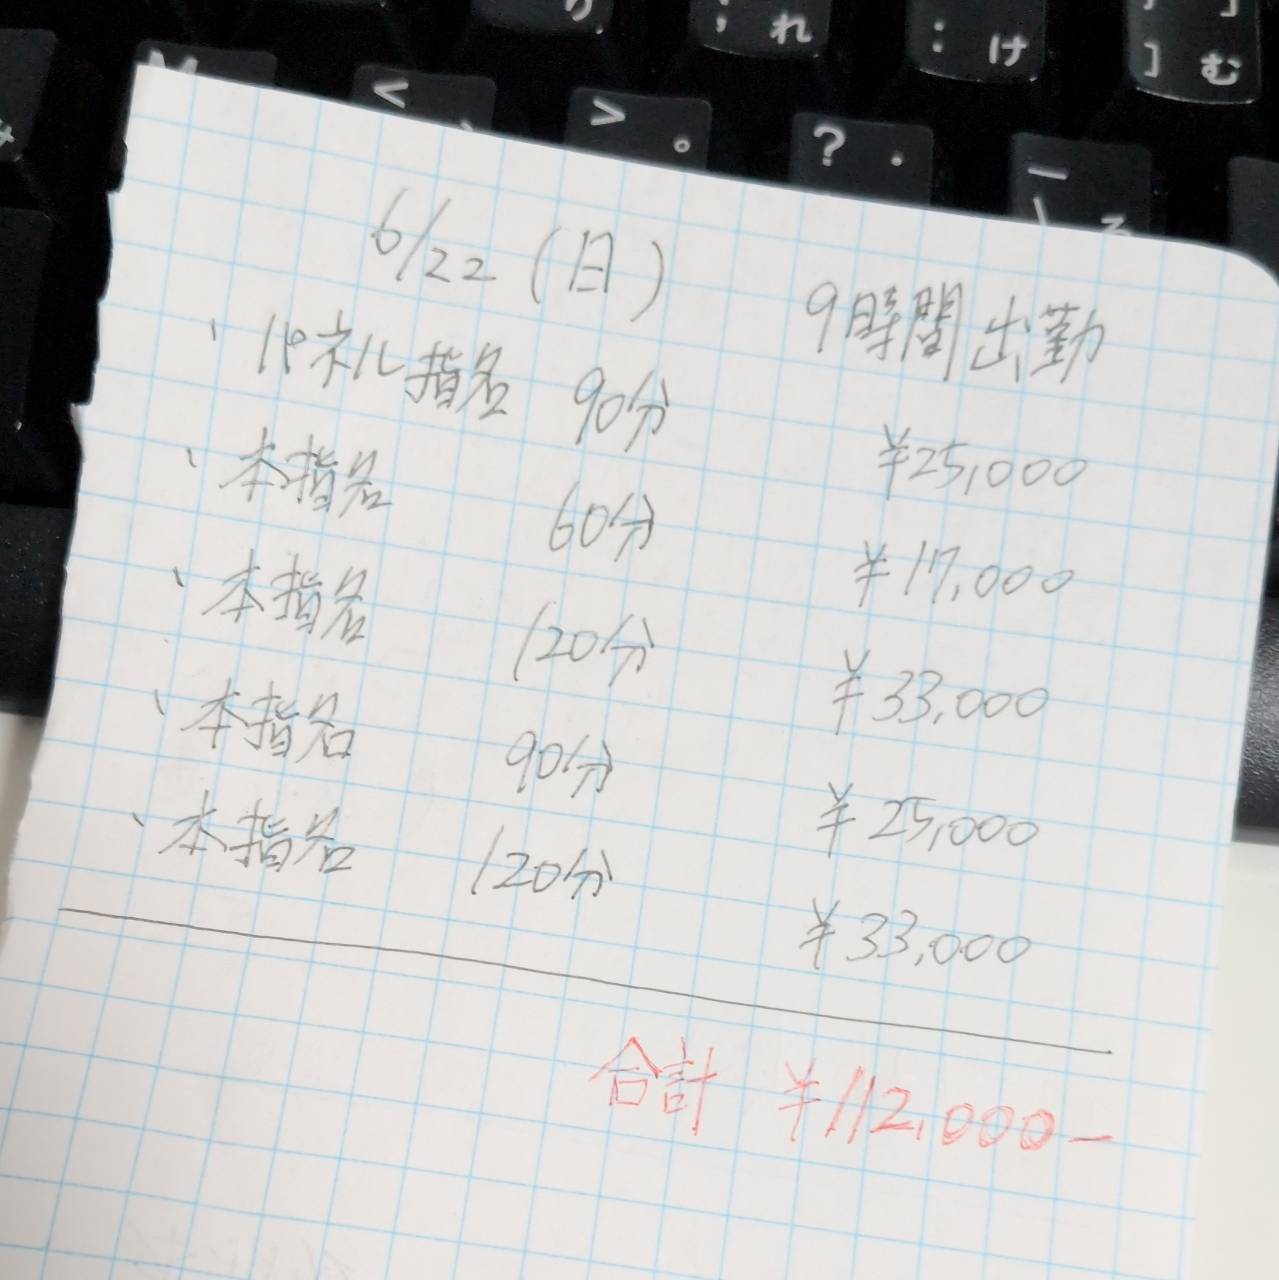 れ
: け
] む
M
<
> 。
? ・
6/22 (日) 9時間出勤
・パネル指名 90分 ¥25,000
・本指名 60分 ¥17,000
・本指名 120分 ¥33,000
・本指名 90分 ¥25,000
・本指名 120分 ¥33,000
合計 ¥112,000-